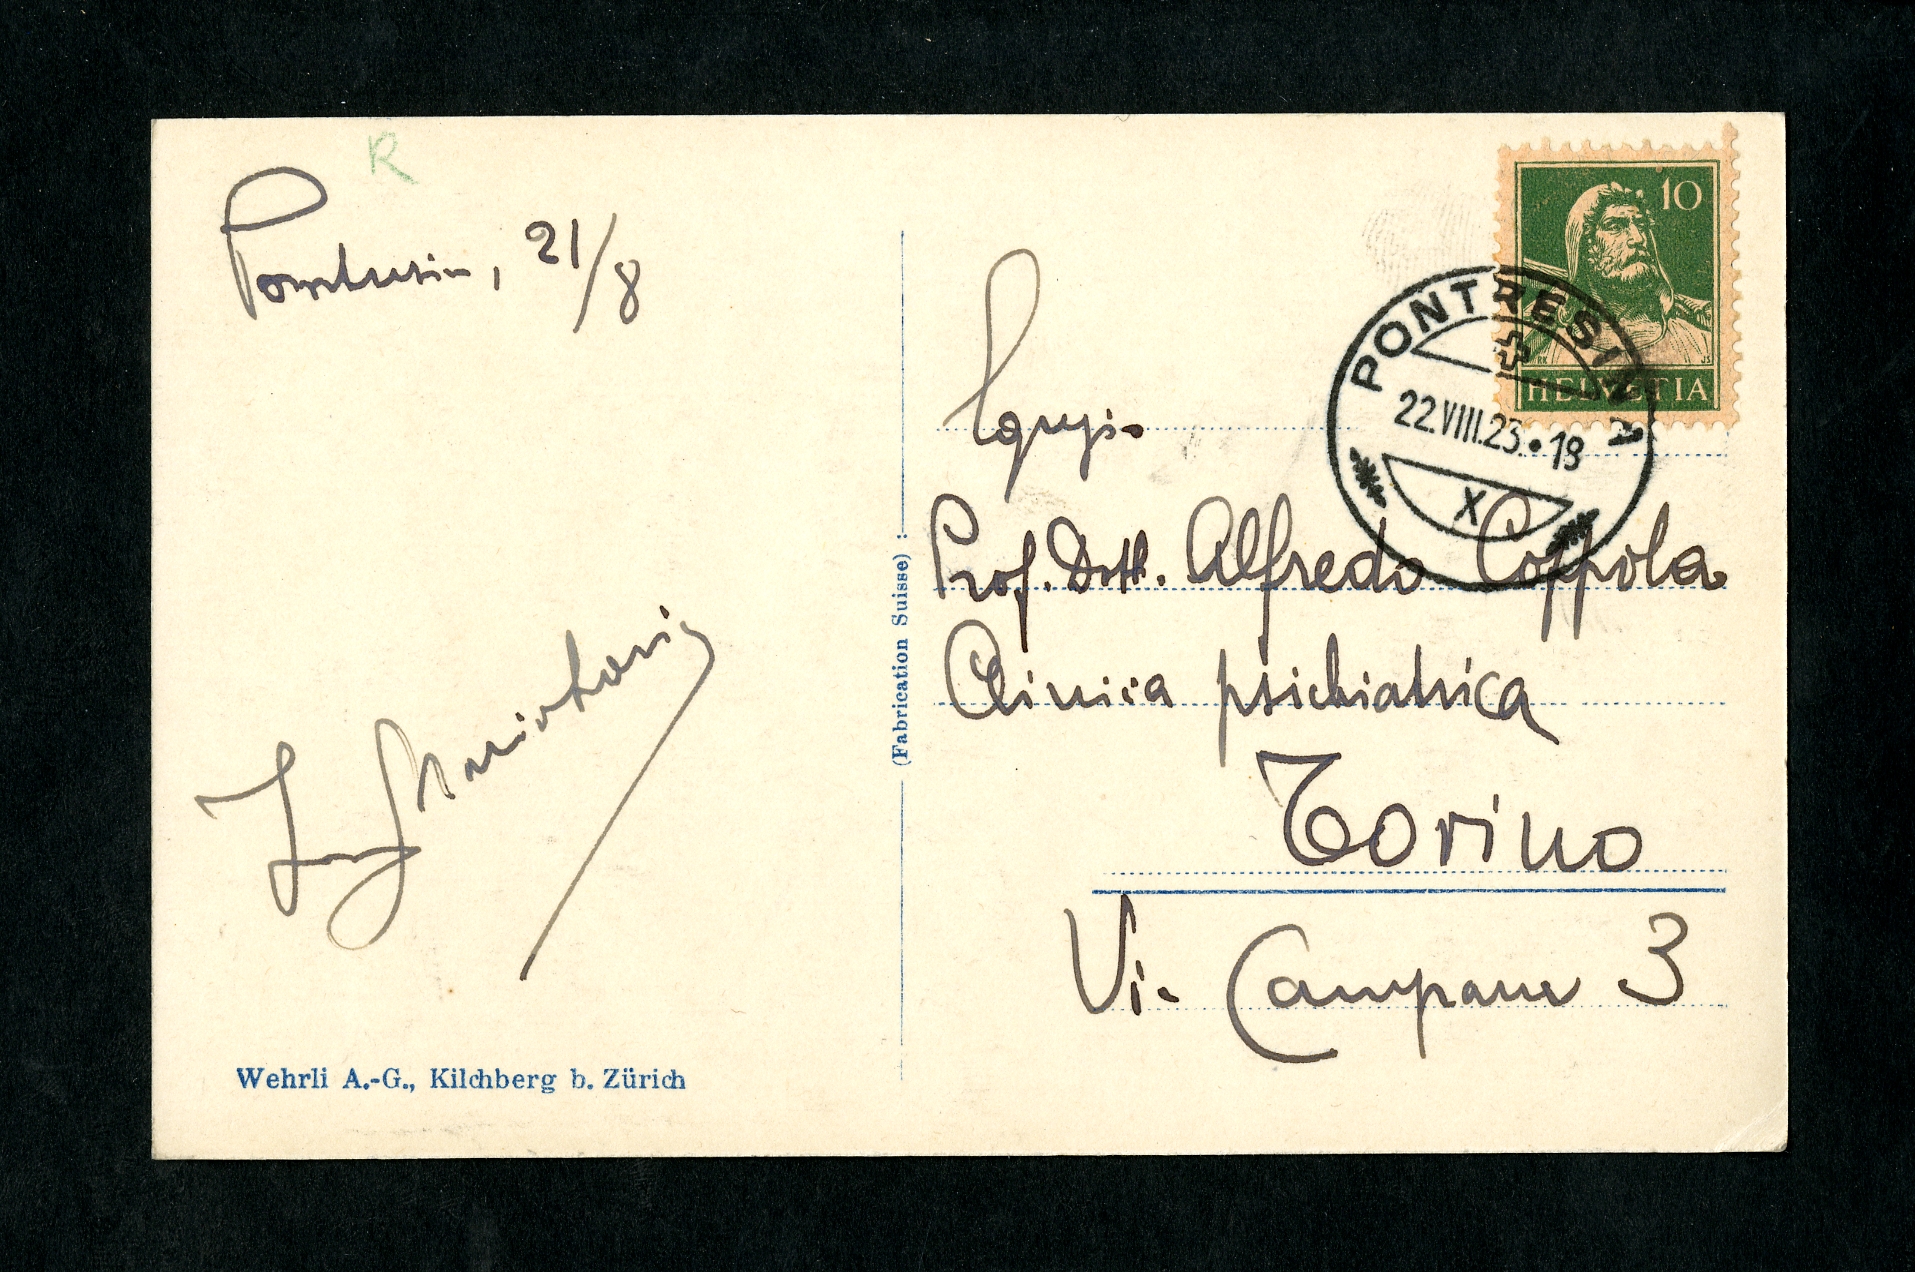 R
Pontresina, 21/8
10
HELVETIA
PONTRESINA
22.VIII.23.•18
X
Egregio
Prof. Dott. Alfredo Coppola
Clinica psichiatrica
Torino
Via Campana 3
(Fabrication Suisse) :
Wehrli A.-G., Kilchberg b. Zürich